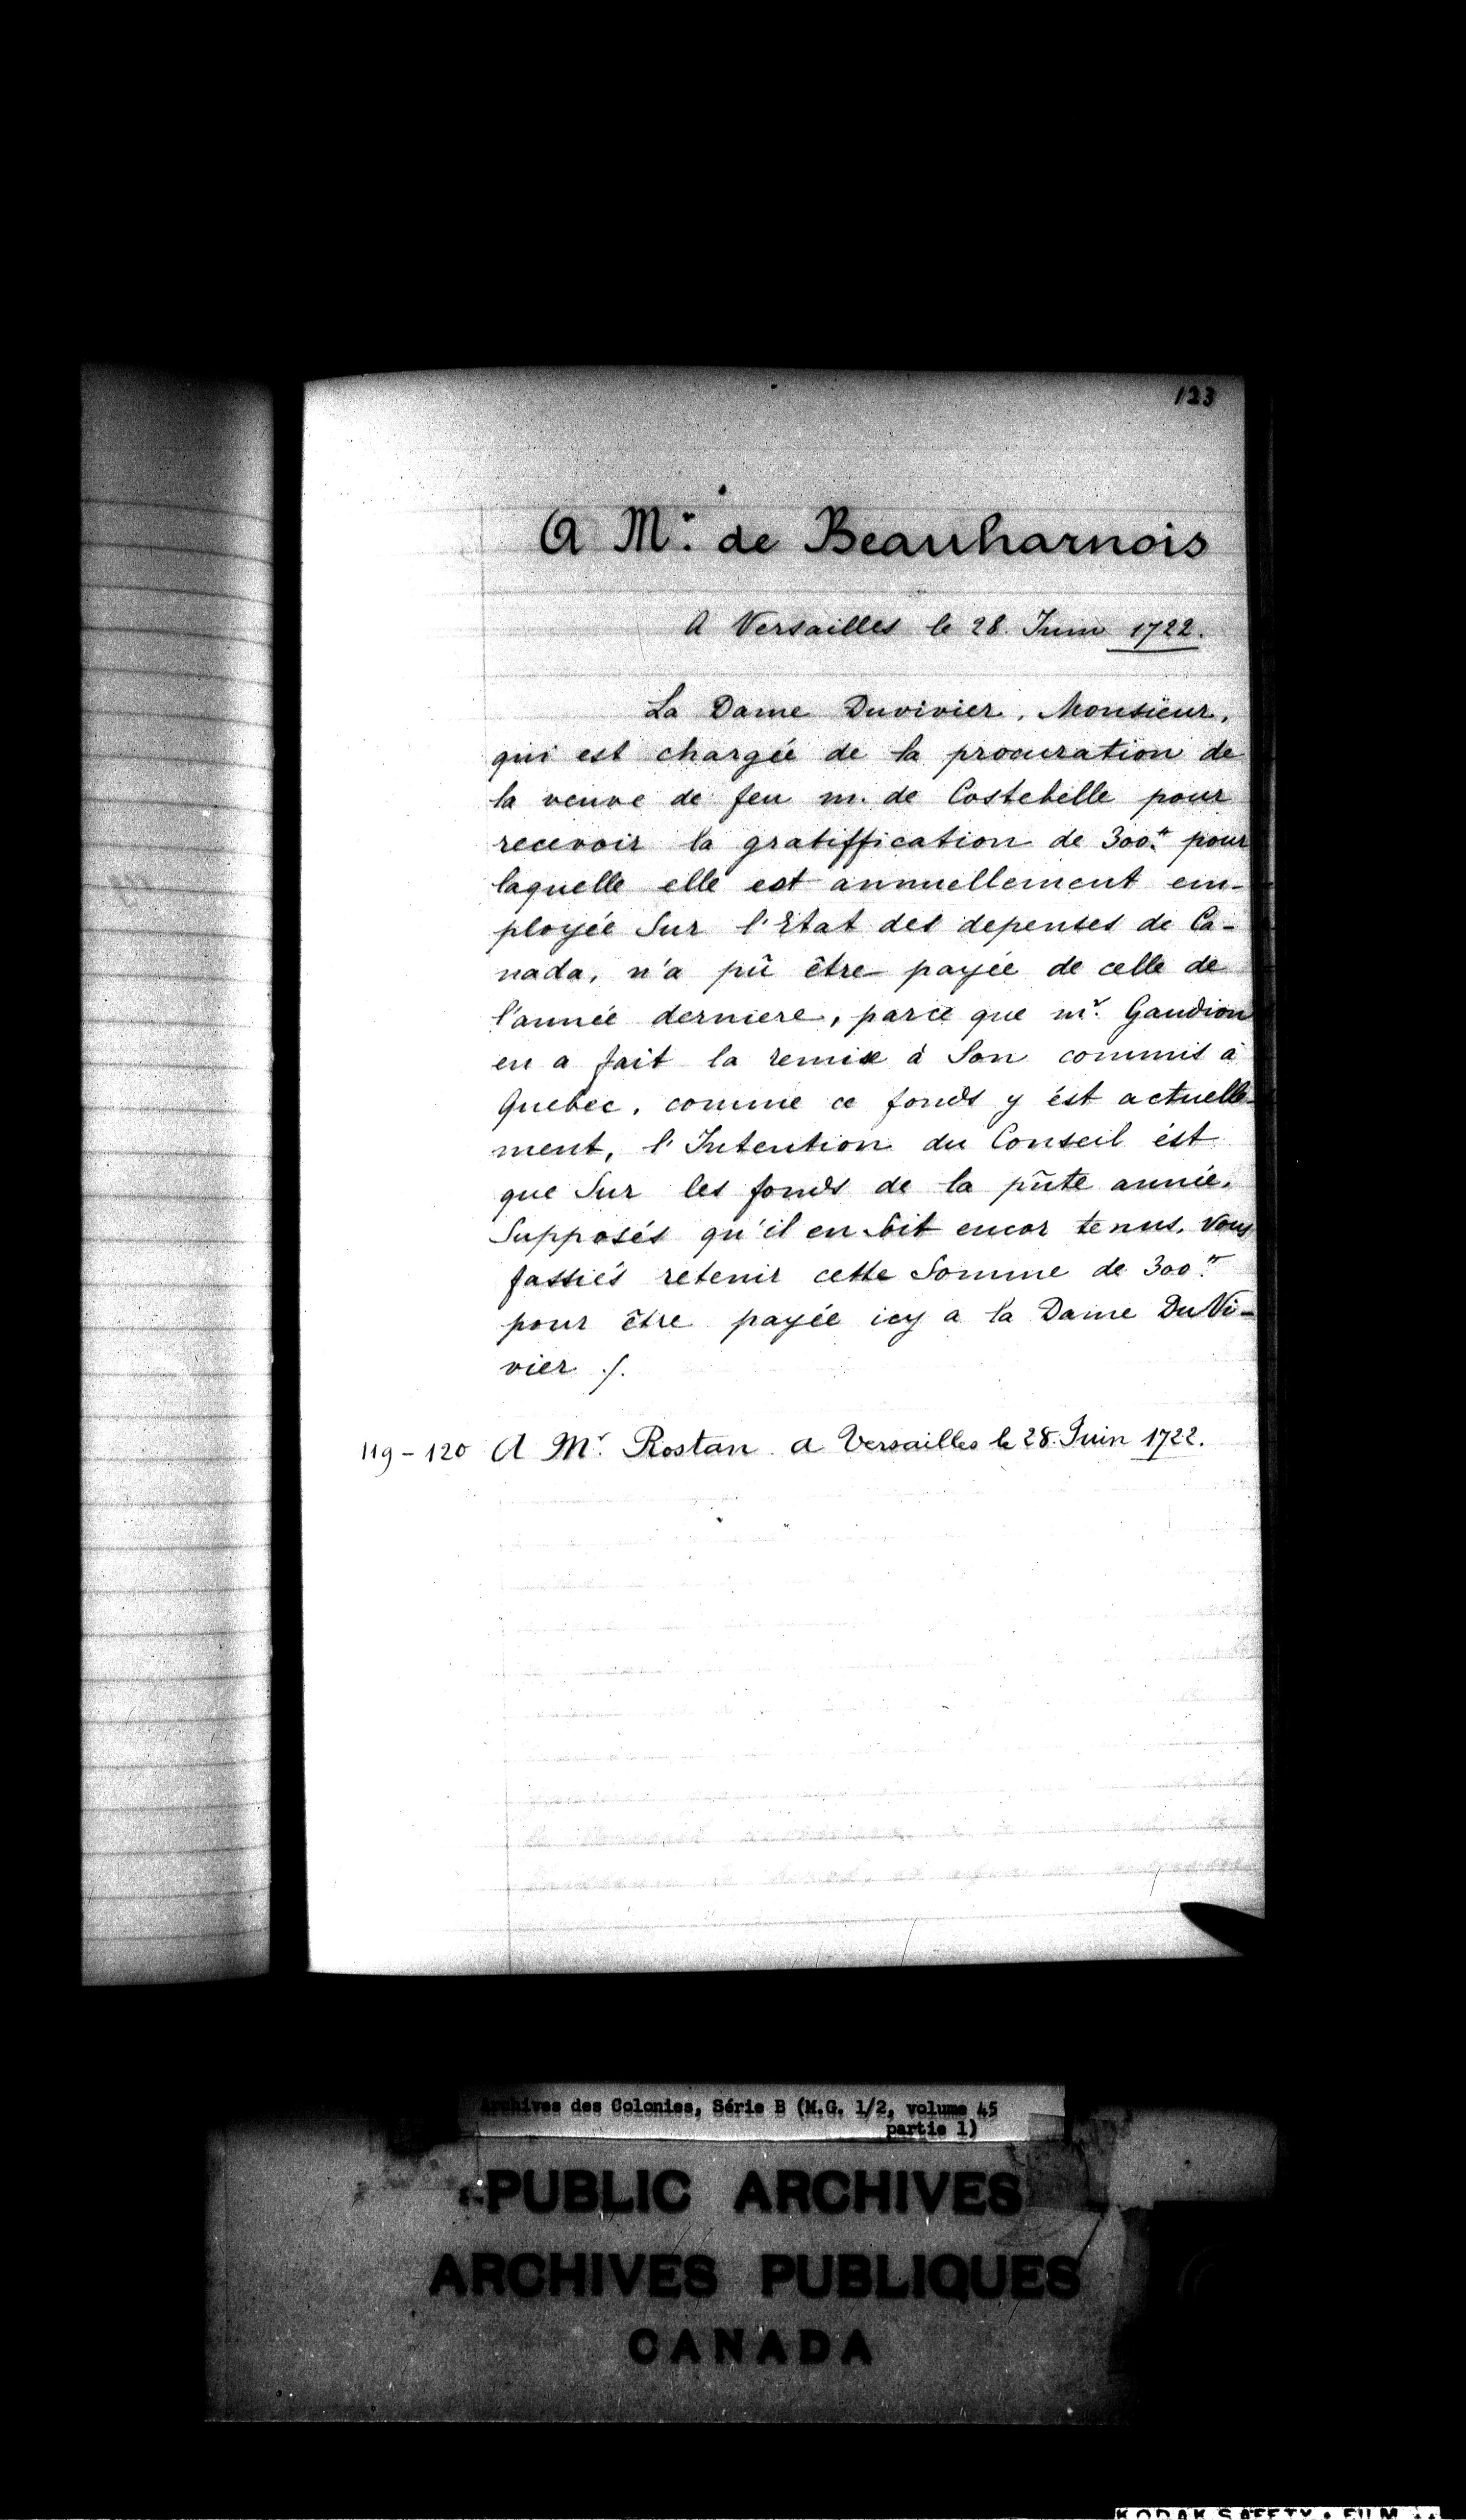 123
A Mr. de Beauharnois
A Versailles le 28. Juin 1722.
La Dame Duvivier, Monsieur,
qui est chargée de la procuration de
la veuve de feu m. de Costebelle pour
recevoir la gratiffication de 300.tt pour
laquelle elle est annuellement em-
ployée Sur l'Etat des depenses de Ca-
nada, n'a pû être payée de celle de
l'année derniere, parce que mr. Gaudion
en a fait la remise à Son commis à
Quebec, comme ce fonds y ést actuelle-
ment, l'Intention du Conseil ést
que Sur les fonds de la pn̄te année,
Supposés qu'il en Soit encor tenus, Vous
fassiés retenir cette Somme de 300.tt
pour être payée icy a la Dame DuVi-
vier ./.
119 - 120 A Mr. Rostan a Versailles le 28. Juin 1722.
Archives des Colonies, Série B (M.G. 1/2, volume 45
partie 1)
PUBLIC ARCHIVES
ARCHIVES PUBLIQUES
CANADA
KODAK SAFETY FILM